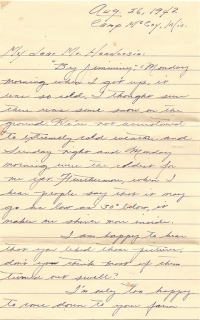 Aug. 26, 1942
Camp McCoy, Wis.
My Dear Mr.
"Beg pinning" - Monday
morning when I got up, it
was so cold, I thought sure
there was some snow on the
ground. We're not accustomed
to extremely cold weather and
Sunday night and Monday
morning were the coldest for
me yet. Furthermore, when I
hear people say that it may
go as low as 30° below, it
makes me shiver more inside.
I am happy to hear
that you liked those pictures,
don't you think most of them
turned out swell?
I'm only too happy
to come down to your farm